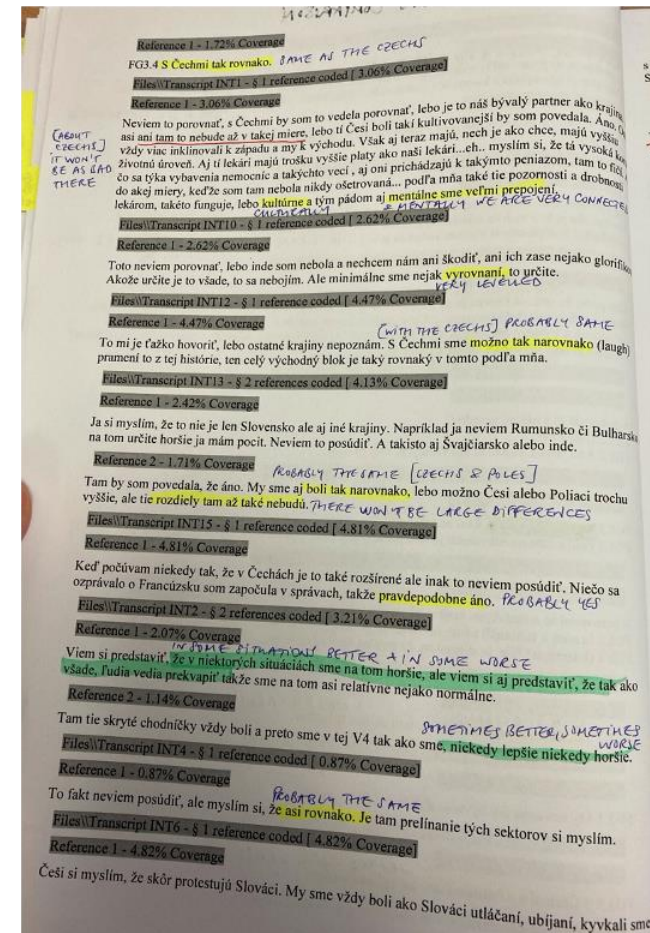 Reference 1 - 1.72% Coverage
FG3.4 S Čechmi tak rovnako. SAME AS THE CZECHS
Files\\Transcript INT1 - § 1 reference coded [ 3.06% Coverage]
Reference 1 - 3.06% Coverage
Neviem to porovnať, s Čechmi by som to vedela porovnať, lebo je to náš bývalý partner ako krajina
[ABOUT CZECHS] IT WON'T BE AS BAD THERE
asi ani tam to nebude až v takej miere, lebo tí Česi boli takí kultivovanejší by som povedala. Áno.
vždy viac inklinovali k západu a my k východu. Však aj teraz majú, nech je ako chce, majú vyššiu
životnú úroveň. Aj tí lekári majú trošku vyššie platy ako naši lekári...eh.. myslím si, že tá vysoká
čo sa týka vybavenia nemocníc a takýchto vecí , aj oni prichádzajú k takýmto peniazom, tam to
do akej miery, keďže som tam nebola nikdy ošetrovaná... podľa mňa také tie pozornosti a drobnosti
lekárom, takéto funguje, lebo kultúrne a tým pádom aj mentálne sme veľmi prepojení.
CULTURALLY & MENTALLY WE ARE VERY CONNECTED
Files\\Transcript INT10 - § 1 reference coded [ 2.62% Coverage]
Reference 1 - 2.62% Coverage
Toto neviem porovnať, lebo inde som nebola a nechcem nám ani škodiť, ani ich zase nejako
Akože určite je to všade, to sa nebojím. Ale minimálne sme nejak vyrovnaní, to určite.
VERY LEVELLED
Files\\Transcript INT12 - § 1 reference coded [ 4.47% Coverage]
Reference 1 - 4.47% Coverage
[WITH THE CZECHS] PROBABLY SAME
To mi je ťažko hovoriť, lebo ostatné krajiny nepoznám. S Čechmi sme možno tak narovnako (laugh)
pramení to z tej histórie, ten celý východný blok je taký rovnaký v tomto podľa mňa.
Files\\Transcript INT13 - § 2 references coded [ 4.13% Coverage]
Reference 1 - 2.42% Coverage
Ja si myslím, že to nie je len Slovensko ale aj iné krajiny. Napríklad ja neviem Rumunsko či
na tom určite horšie ja mám pocit. Neviem to posúdiť. A takisto aj Švajčiarsko alebo inde.
Reference 2 - 1.71% Coverage
PROBABLY THE SAME [CZECHS & POLES]
Tam by som povedala, že áno. My sme aj boli tak narovnako, lebo možno Česi alebo Poliaci trochu
vyššie, ale tie rozdiely tam až také nebudú. THERE WON'T BE LARGE DIFFERENCES
Files\\Transcript INT15 - § 1 reference coded [ 4.81% Coverage]
Reference 1 - 4.81% Coverage
Keď počúvam niekedy tak, že v Čechách je to také rozšírené ale inak to neviem posúdiť. Niečo sa
ozprávalo o Francúzsku som započula v správach, takže pravdepodobne áno. PROBABLY YES
Files\\Transcript INT2 - § 2 references coded [ 3.21% Coverage]
Reference 1 - 2.07% Coverage
IN SOME SITUATIONS BETTER & IN SOME WORSE
Viem si predstaviť, že v niektorých situáciách sme na tom horšie, ale viem si aj predstaviť, že tak ako
všade, ľudia vedia prekvapiť takže sme na tom asi relatívne nejako normálne.
Reference 2 - 1.14% Coverage
SOMETIMES BETTER, SOMETIMES WORSE
Tam tie skryté chodníčky vždy boli a preto sme v tej V4 tak ako sme, niekedy lepšie niekedy horšie.
Files\\Transcript INT4 - § 1 reference coded [ 0.87% Coverage]
Reference 1 - 0.87% Coverage
PROBABLY THE SAME
To fakt neviem posúdiť, ale myslím si, že asi rovnako. Je tam prelínanie tých sektorov si myslím.
Files\\Transcript INT6 - § 1 reference coded [ 4.82% Coverage]
Reference 1 - 4.82% Coverage
Češi si myslím, že skôr protestujú Slováci. My sme vždy boli ako Slováci utláčaní, ubíjaní, kyvkali sme